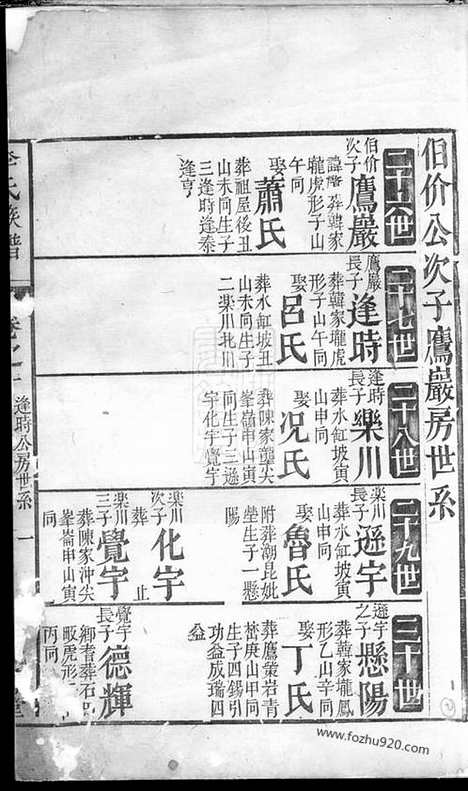 伯价公次子鷹巖房世系
二十六世
伯价
次子
鷹巖
諱
葬韓家
壠虎形子山
午同
娶
蕭氏
葬祖屋後丑
山未同生子
三逢時逢泰
逢亨
二十七世
鷹巖
長子
逢時
葬韓家壠虎
形子山午同
娶
呂氏
葬水缸坡丑
山未同生子
二楽川北川
二十八世
逢時
長子
樂川
葬水缸坡寅
山申同
娶
况氏
葬陳家壟尖
峯嵓申山寅
同生子三遜
宇化宇覺宇
二十九世
楽川
長子
遜宇
葬水缸坡寅
山申同
娶
魯氏
附葬潮昆妣
坐生子一懸
陽
楽川
次子
化宇
葬
止
楽川
三子
覺宇
葬陳家沖尖
峯嵛申山寅
同
三十世
遜宇
之子
懸陽
葬韓家壠鳳
形乙山辛同
娶
丁氏
葬鷹嶪岩青
樹庚山甲同
生子四錫引
功益成瑞四
益
覺宇
長子
德輝
鄉耆葬石
畈虎形
丙同
氏族譜
卷之
逢時公房世系
一
www.fozhu920.com